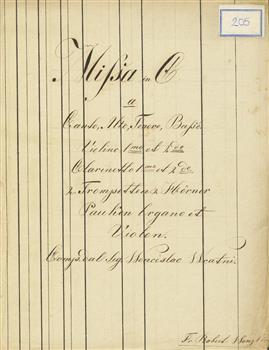 205
Missa in C
a
Canto, Alto, Tenore, Basso
Violino 1mo et 2do
Clarinetto 1mo et 2do
2 Trompetten 2 Hörner
Pauken Organo et
Violon.
Comp. dal Sig. Wenceslao Wrastni.
Robert